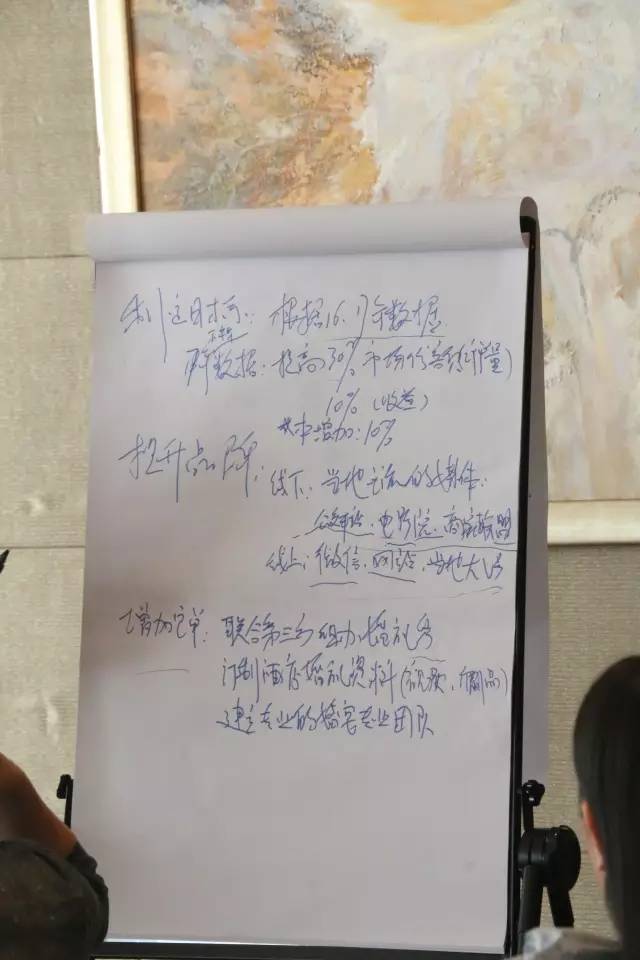 制定目标: 根据16.17年数据
数据: 提高30% 市场份额(单量)
10% (收益)
增加: 10%
提升品牌: 线下: 当地主流的媒体:
公交站、电影院、商家联盟
线上: 微信、网站、当地大V
增加定单: 联合第三方组办婚礼秀
订制酒店婚礼资料(视频、印刷品)
建立专业的婚宴专业团队